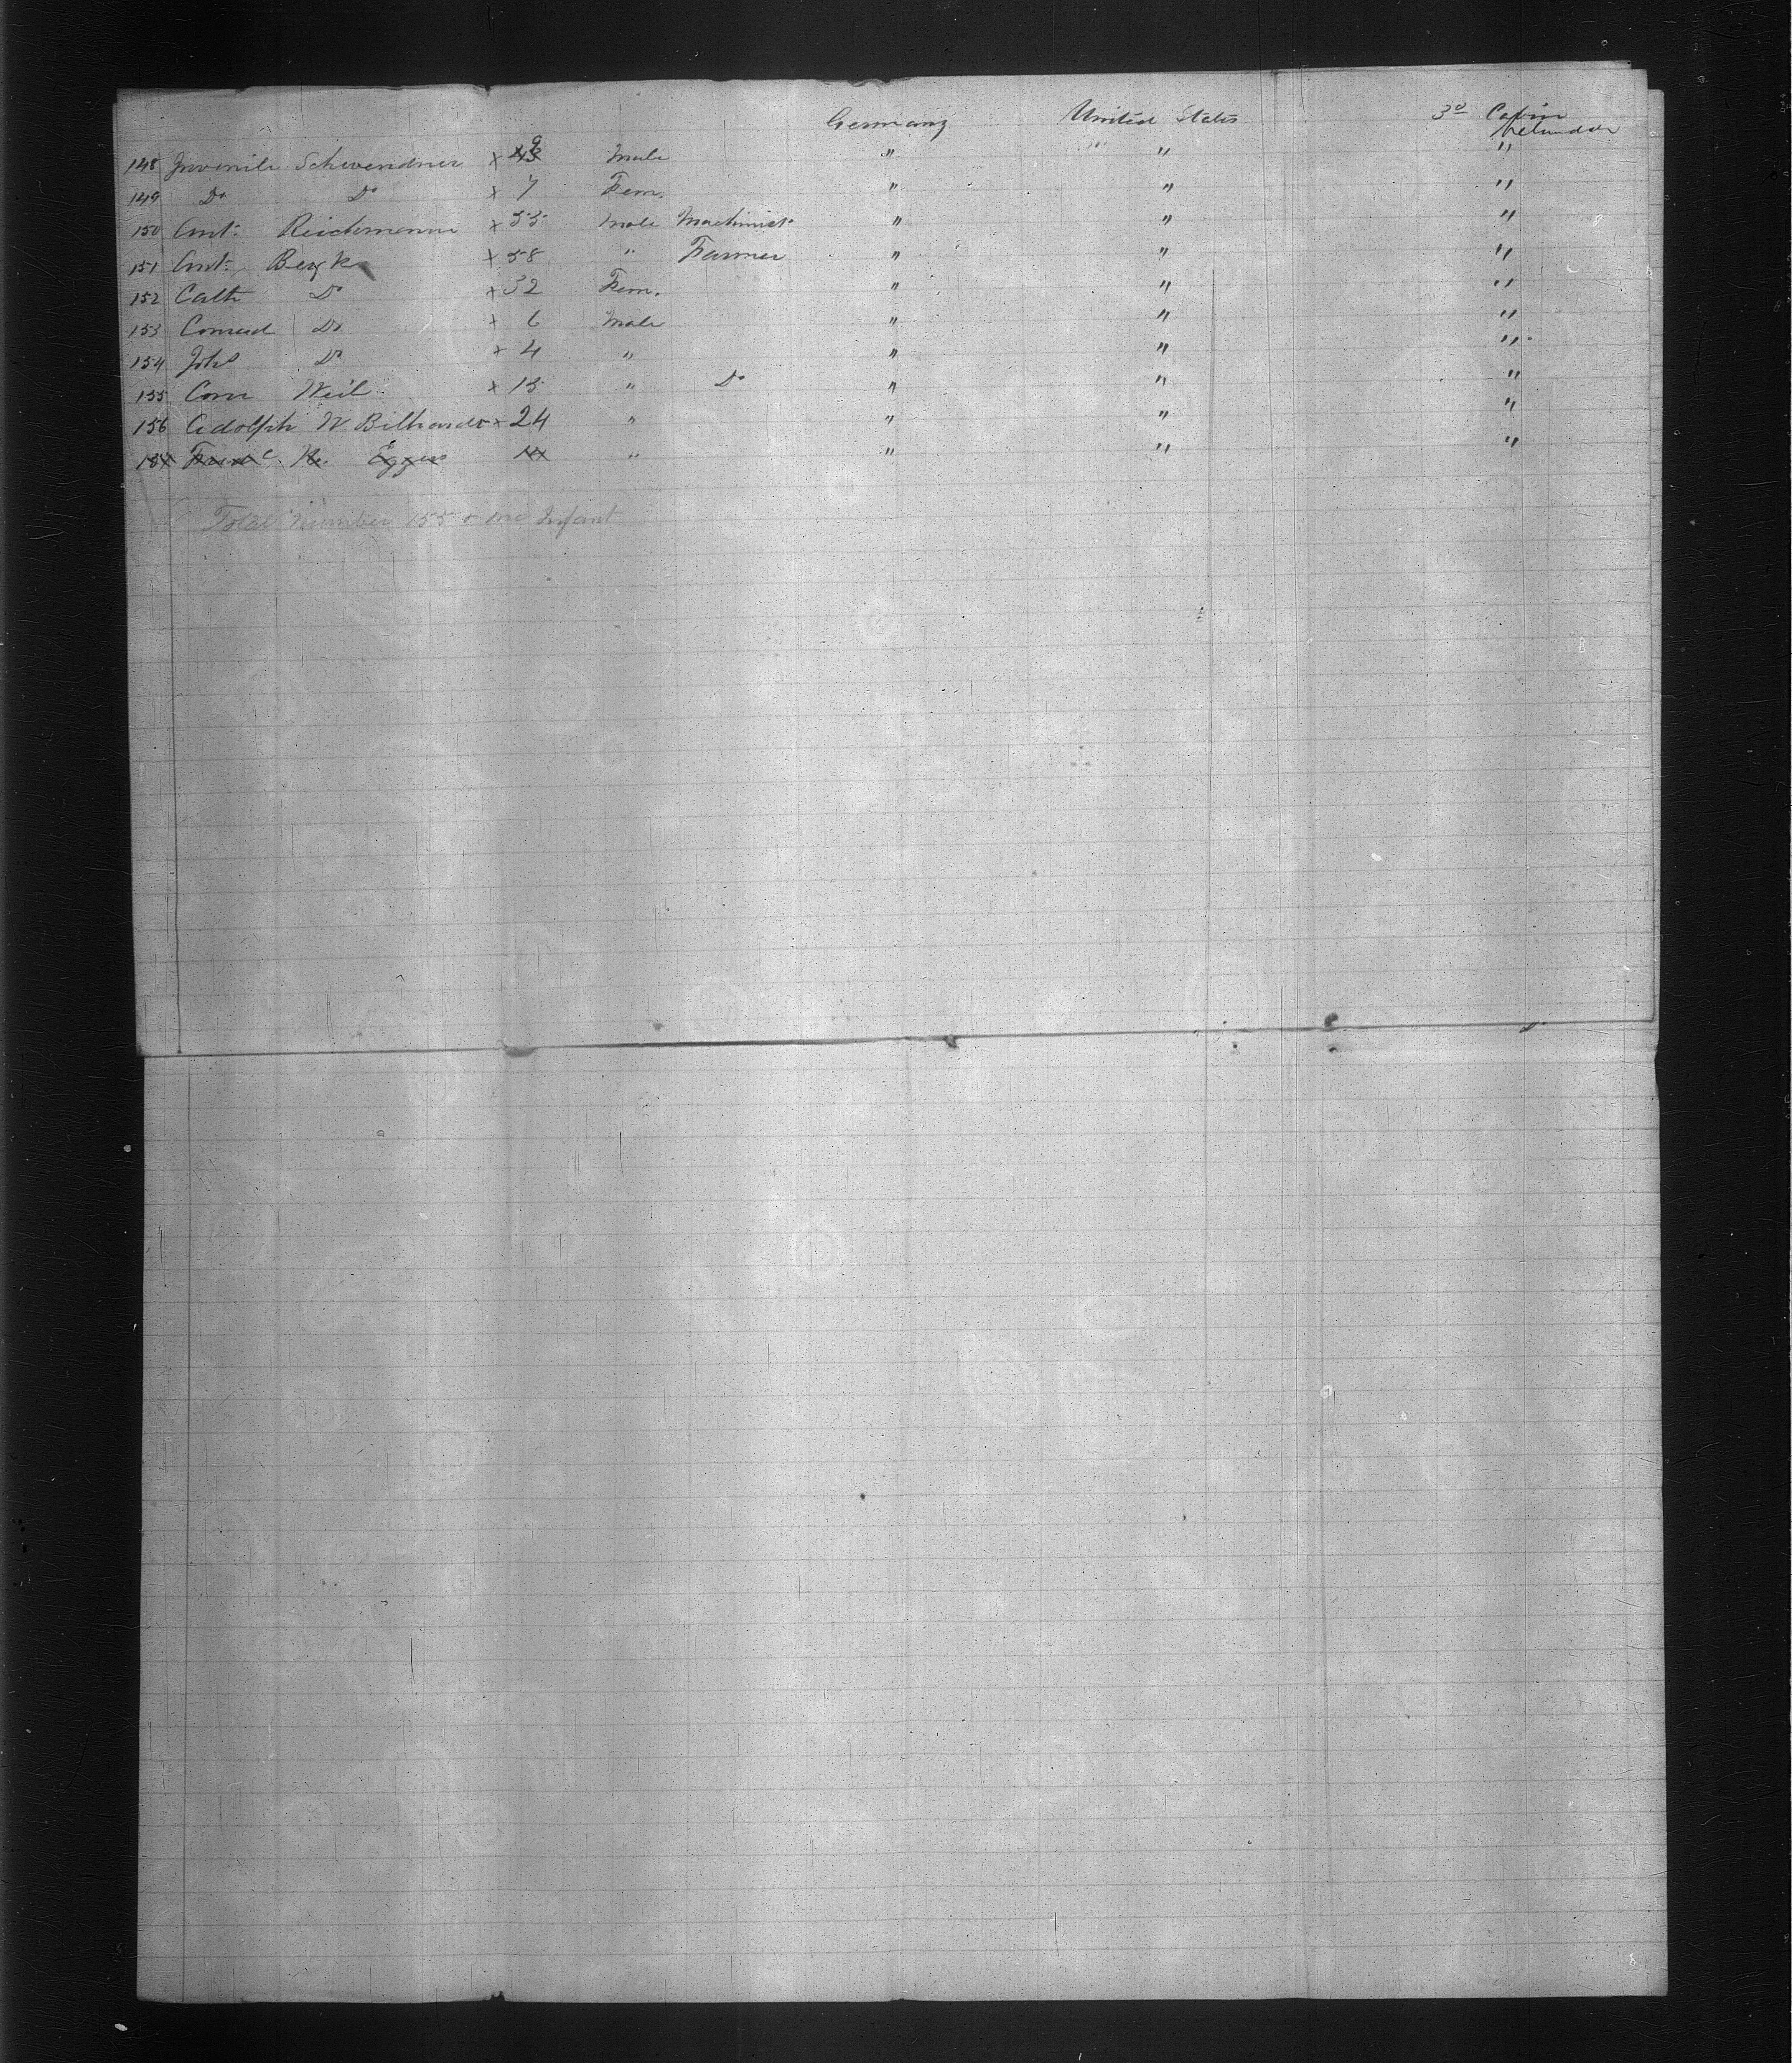 Germany United States 3d Cabin
148 Juvenile Schwendner x 9 Male " " "
149 Do Do x 7 Fem. " " "
150 Ant. Reichmann x 55 Male Machinist " " "
151 Ant. Berk x 58 " Farmer " " "
152 Cath Do x 32 Fem. " " "
153 Conrad Do x 6 Male " " "
154 Joh Do x 4 " " " "
155 Conr Weil x 15 " Do " " "
156 Adolph W x 24 " " " "
K. Eggers " " " "
Total Number 155 + one Infant